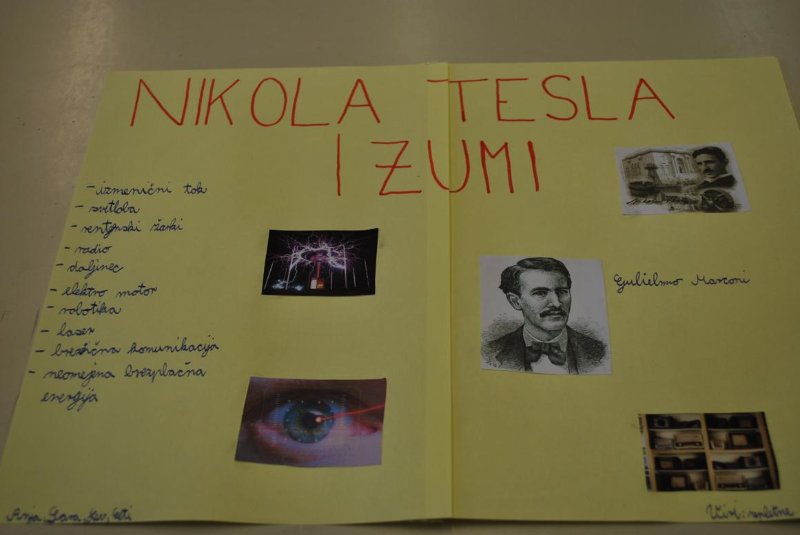 NIKOLA TESLA
IZUMI
- izmenični tok
- svetloba
- rentgenski žarki
- radio
- daljinec
- elektro motor
- robotika
- laser
- brezžična komunikacija
- neomejena brezplačna
energija
Gulielmo Marconi
Viri: spletne